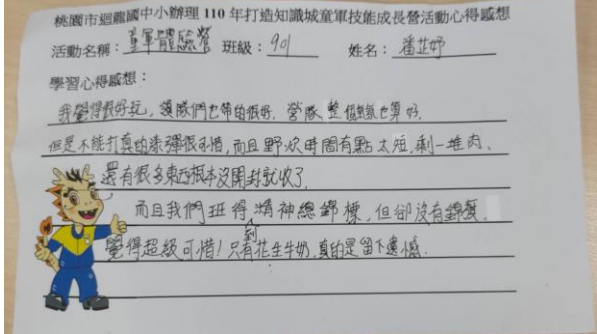 桃園市迴龍國中小辦理 110 年打造知識城童軍技能成長營活動心得感想
活動名稱：童軍體驗營 班級：901 姓名：潘芷妤
學習心得感想：
我覺得很好玩，讓隊們也帶的很好，營隊整個氣氛也算好，
但是不能打真的漆彈很可惜，而且野炊時間有點太短，剩一堆肉、
還有很多東西根本沒開封就收了。
而且我們班得精神總錦標，但卻沒有錦旗，
覺得超級可惜！只有剩花生牛奶，真的是留下遺憾。